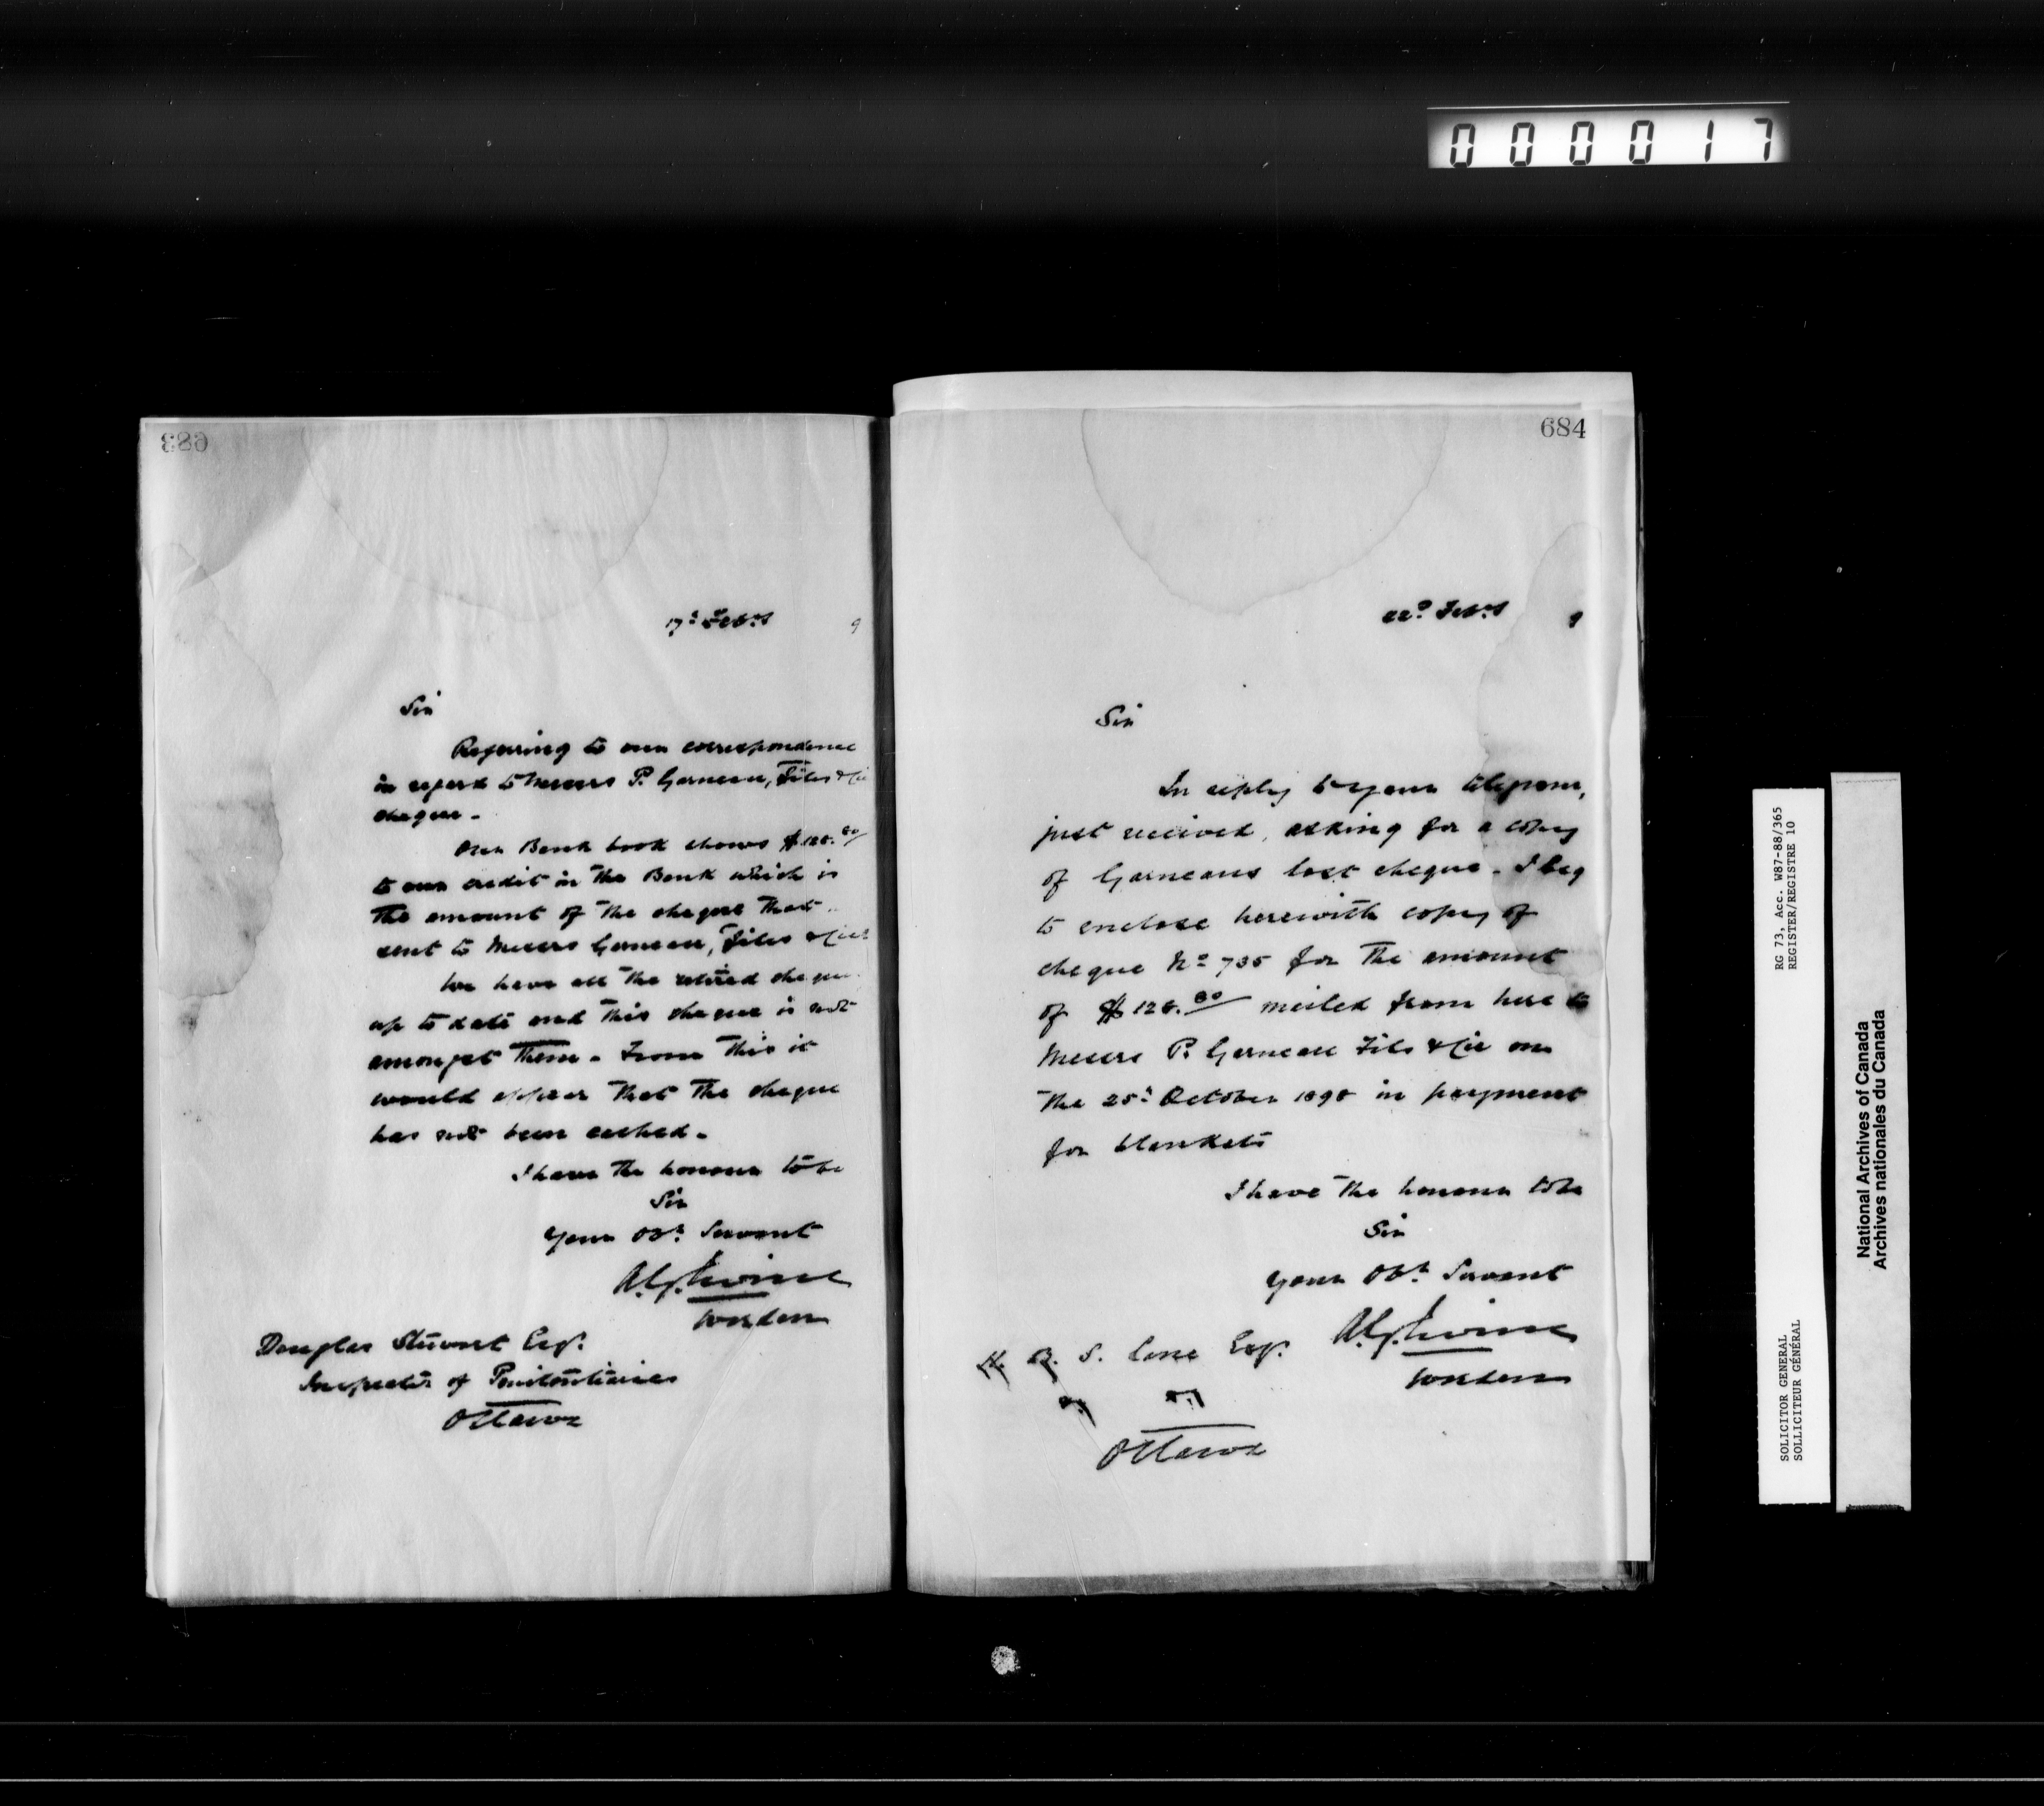 000017
683
17th Feby 9
Sir
Referring to our correspondence
in regard to Messrs P. Garneau, Fils & Cie
cheque -
Our Bank book shows $128.80
to our credit in the Bank which is
the amount of the cheque that
sent to Messrs Garneau, Fils & Cie
We have all the retired cheques
up to date and this cheque is not
amongst them - From this it
would appear that the cheque
has not been cashed -
I have the honour to be
Sir
Your Obt Servant
Warden
Douglas Stewart Esq.
Inspector of Penitentiaries
Ottawa
684
22d Feby 9
Sir
In reply to your telegram,
just received, asking for a copy
of Garneaus lost cheque - I beg
to enclose herewith copy of
cheque No 735 for the amount
of $128.80 mailed from here to
Messrs P. Garneau Fils & Cie on
the 25th October 1898 in payment
for blankets
I have the honour to be
Sir
Your Obt Servant
S. Esq.
Warden
Ottawa
RG 73, Acc. W87-88/365
REGISTER/REGISTRE 10
SOLICITOR GENERAL
SOLLICITEUR GÉNÉRAL
National Archives of Canada
Archives nationales du Canada